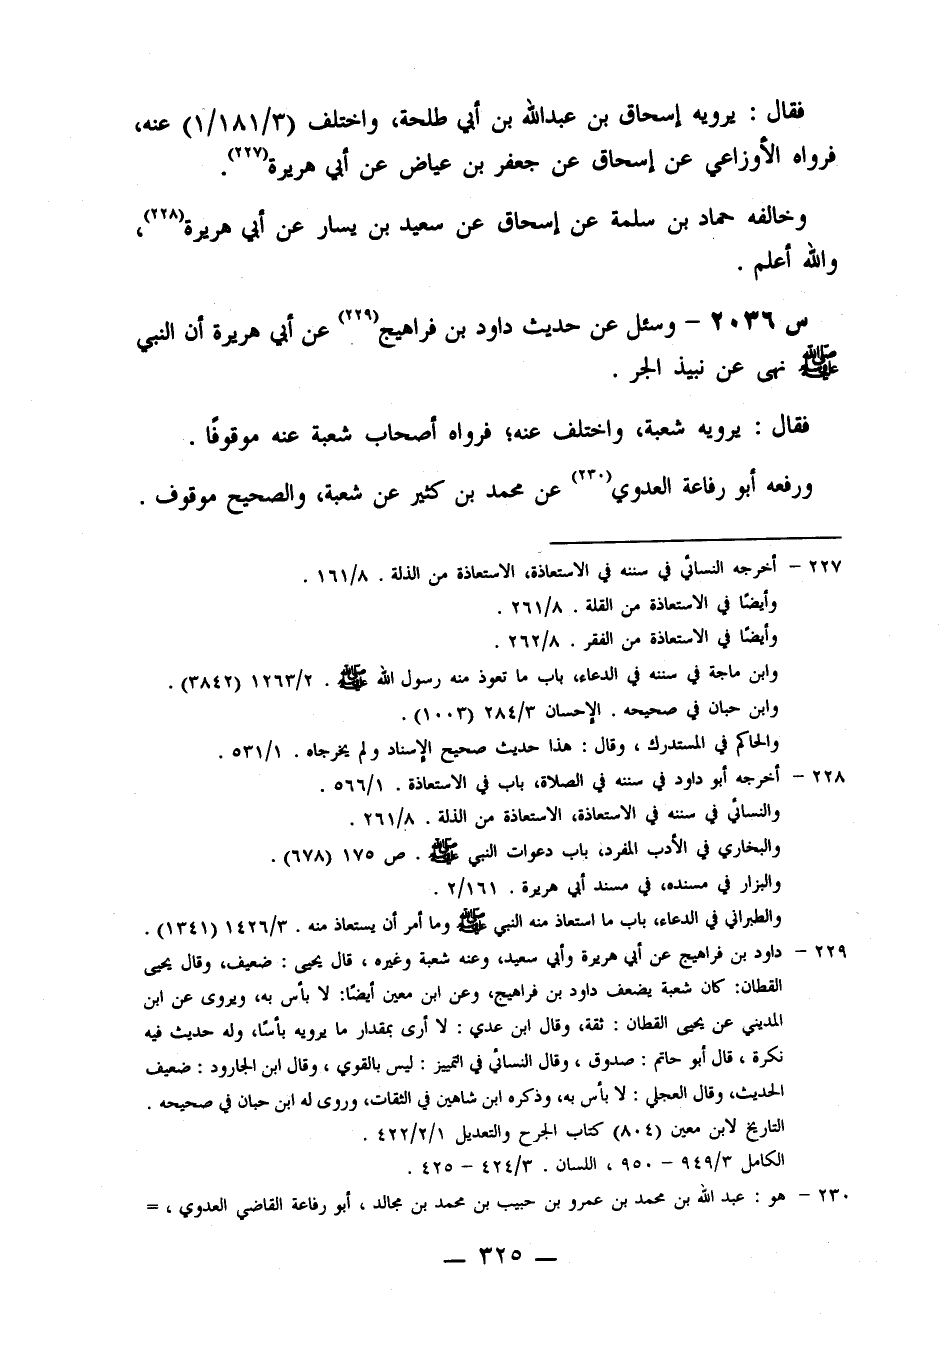 فقال : يرويه إسحاق بن عبدالله بن أبي طلحة، واختلف (١/١٨١/٣) عنه،
فرواه الأوزاعي عن إسحاق عن جعفر بن عياض عن أبي هريرة(٢٢٧).
وخالفه حماد بن سلمة عن إسحاق عن سعيد بن يسار عن أبي هريرة(٢٢٨)،
والله أعلم .
س ٢٠٣٦ – وسئل عن حديث داود بن فراهيج(٢٢٩) عن أبي هريرة أن النبي
ﷺ نهى عن نبيذ الجر .
فقال : يرويه شعبة، واختلف عنه؛ فرواه أصحاب شعبة عنه موقوفًا .
ورفعه أبو رفاعة العدوي(٢٣٠) عن محمد بن كثير عن شعبة، والصحيح موقوف .
٢٢٧ – أخرجه النسائي في سننه في الاستعاذة، الاستعاذة من الذلة . ١٦١/٨ .
وأيضًا في الاستعاذة من القلة . ٢٦١/٨ .
وأيضًا في الاستعاذة من الفقر . ٢٦٢/٨ .
وابن ماجة في سننه في الدعاء، باب ما تعوذ منه رسول الله ﷺ . ١٢٦٣/٢ (٣٨٤٢) .
وابن حبان في صحيحه . الإحسان ٢٨٤/٣ (١٠٠٣) .
والحاكم في المستدرك ، وقال : هذا حديث صحيح الإسناد ولم يخرجاه . ٥٣١/١ .
٢٢٨ – أخرجه أبو داود في سننه في الصلاة، باب في الاستعاذة . ٥٦٦/١ .
والنسائي في سننه في الاستعاذة، الاستعاذة من الذلة . ٢٦١/٨ .
والبخاري في الأدب المفرد، باب دعوات النبي ﷺ . ص ١٧٥ (٦٧٨) .
والبزار في مسنده، في مسند أبي هريرة . ٢/١٦١ .
والطبراني في الدعاء، باب ما استعاذ منه النبي ﷺ وما أمر أن يستعاذ منه . ١٤٢٦/٣ (١٣٤١) .
٢٢٩ – داود بن فراهيج عن أبي هريرة وأبي سعيد، وعنه شعبة وغيره ، قال يحيى : ضعيف، وقال يحيى
القطان: كان شعبة يضعف داود بن فراهيج، وعن ابن معين أيضًا: لا بأس به، ويروى عن ابن
المديني عن يحيى القطان : ثقة، وقال ابن عدي : لا أرى بمقدار ما يرويه بأسًا، وله حديث فيه
نكرة ، قال أبو حاتم : صدوق ، وقال النسائي في التمييز : ليس بالقوي ، وقال ابن الجارود : ضعيف
الحديث، وقال العجلي : لا بأس به، وذكره ابن شاهين في الثقات، وروى له ابن حبان في صحيحه .
التاريخ لابن معين (٨٠٤) كتاب الجرح والتعديل ٤٢٢/٢/١ .
الكامل ٩٤٩/٣ – ٩٥٠ ، اللسان . ٤٢٤/٣ – ٤٢٥ .
٢٣٠ – هو : عبد الله بن محمد بن عمرو بن حبيب بن محمد بن مجالد ، أبو رفاعة القاضي العدوي ، =
— ٣٢٥ —